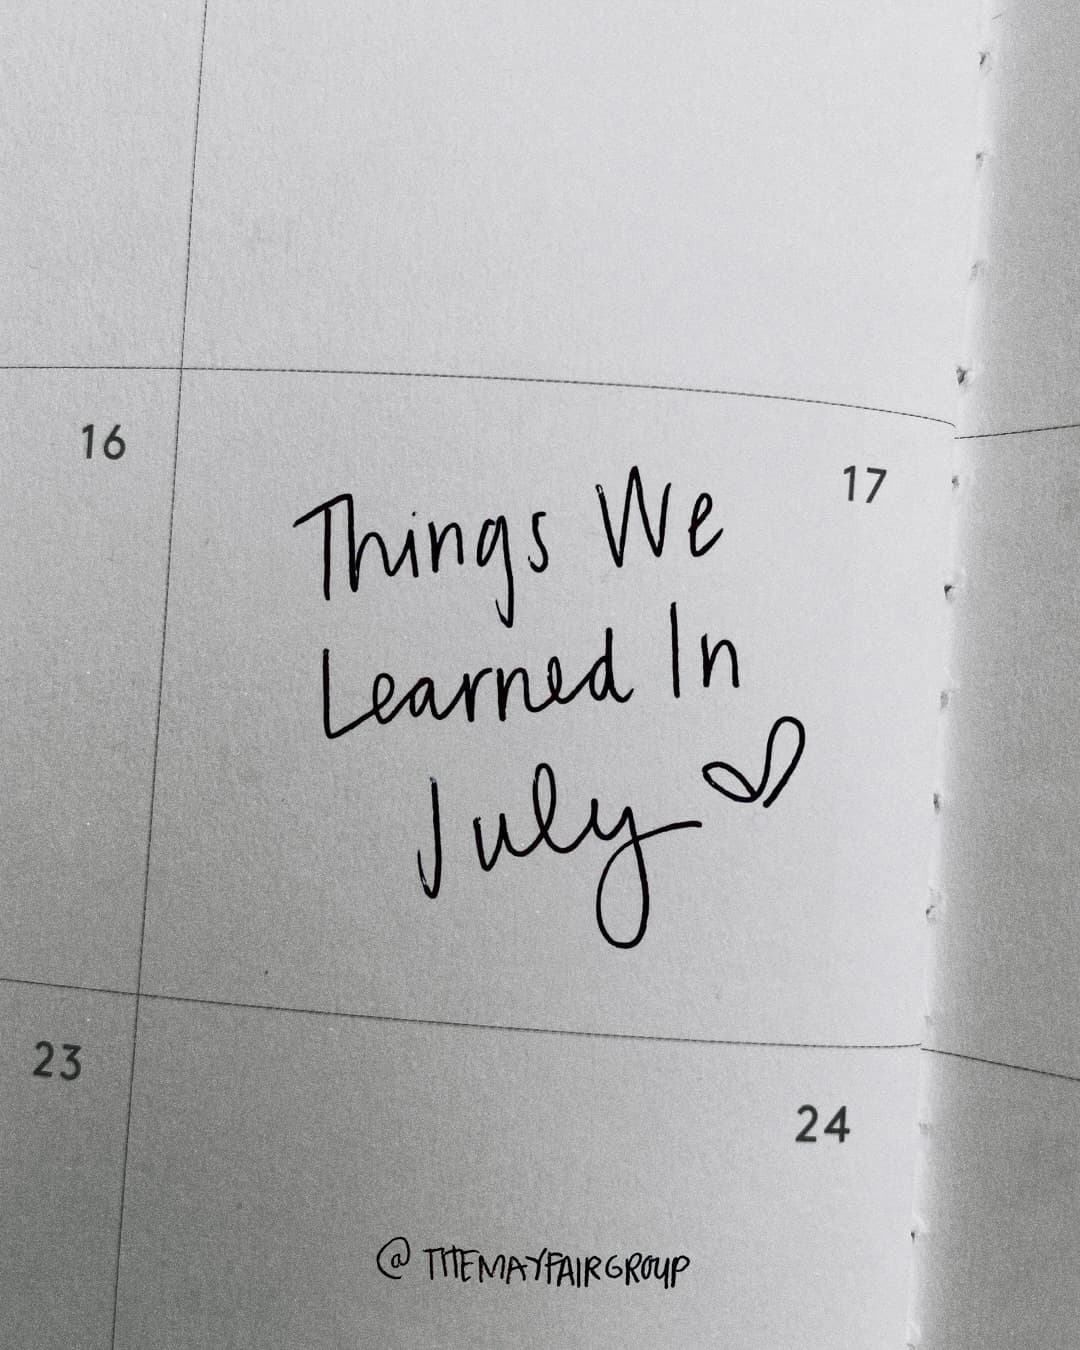 16
17
Things We
Learned In
July
23
24
@THEMAYFAIRGROUP